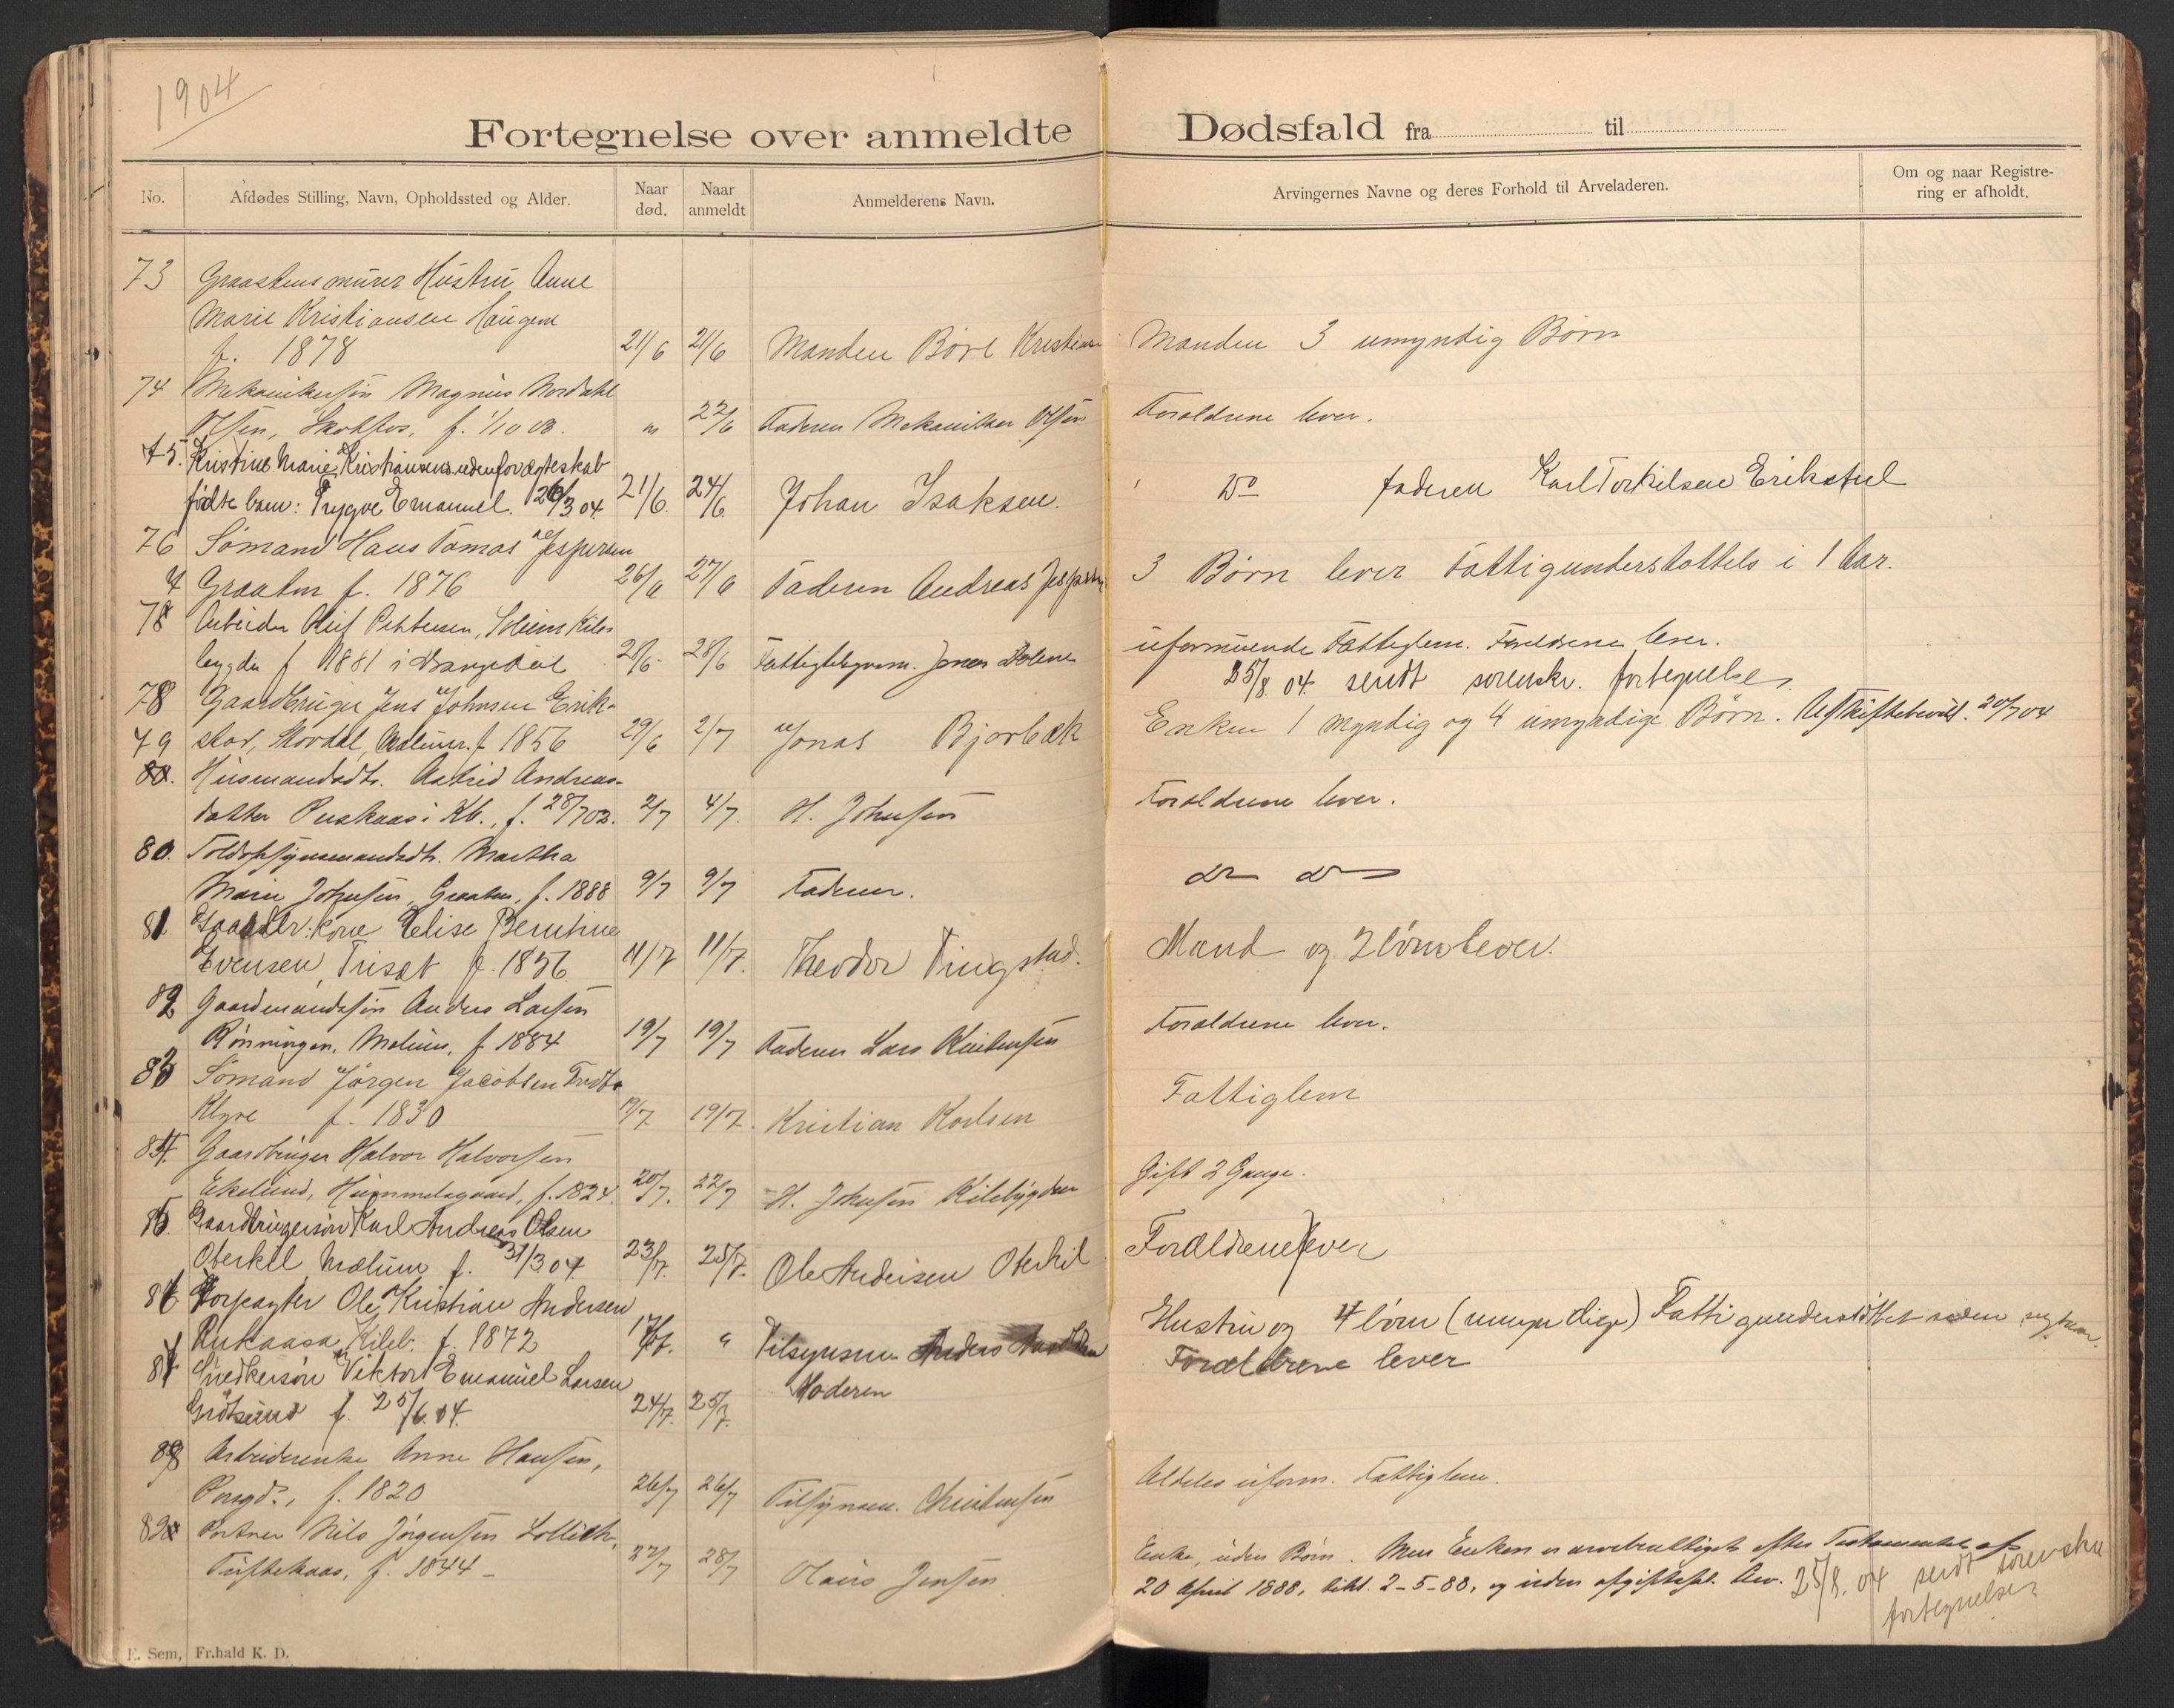 1904
Fortegnelse over anmeldte Dødsfald fra til
No. Afdødes Stilling, Navn, Opholdssted og Alder. Naar død. Naar anmeldt Anmelderens Navn. Arvingernes Navne og deres Forhold til Arveladeren. Om og naar Registrering er afholdt.
73 Graastensmurer Hustru Anne
Marie Kristiansen Haugene
f. 1878 21/6 21/6 Manden Børe Manden 3 umyndig Børn
74 Mekanikersøn Magnus Nordahl
Olsen, Skotfos, f. 1/10 03. " 22/6 Faderen Mekaniker Olsen Forældrene lever.
75. Kristine Marie Kristiansens udenfor ægteskab
fødte barn: Trygve Emanuel. 26/3 04. 21/6. 24/6. Johan Isaksen. Do faderen Karl Torkilsen Erikstul
76 Sømand Hans Tomas Jespersen
Graaten f. 1876 26/6 27/6 Faderen Andreas Jespersen 3 Børn lever Fattigunderstøttels i 1 Aar.
78 Arbeider Leif Pettersen, Solum Kile-
bygda f 1881 i Drangedal 28/6 28/6 Jonas uformuende Fattiglem. Forældrene lever.
25/8 04. sendt sorenskr. fortegnelse.
78 Gaardbruger Jens Johnsen Erik-
79 stad, Mordal, f 1856 29/6 2/7 Jonas Bjorbæk Enken 1 myndig og 4 umyndige Børn. 20/7 04
80. Husmandsdt. Astrid Andreas-
datter i Kb., f. 28/7 03. 2/7 4/7. H. Johnsen Forældrene lever.
80. Toldopsynsmandsdt. Martha
Marie Johnsen, Graaten, f. 1888 9/7 9/7 Faderen. do do
81 Gaardbr. kone Elise Berntine
Evensen, Trisæt f. 1856 11/7 11/7. Theodor Tingstad. Mand og 2 börn lever.
82 Gaardmandssøn Anders Larsen
Rønningen, Melum, f 1884 19/7 19/7 Faderen Lars Christensen Forældrene lever.
83 Sømand Jørgen Jacobsen
Klyve f. 1830 19/7 19/7. Kristian Karlsen Fattiglem
84. Gaardbruger Halvor Halvorsen
Ekelund, Hummelsgaard, f. 1824. 20/7. 22/7 H. Johnsen Kilebygden Gift 2 Gange.
85. Gaardbrugersøn Karl Andreas Olsen
Oterkil Mælum f. 31/3 04 23/7. 25/7. Ole Andersen Oterkil Forældrene lever
86 Forpagter Ole Kristian Andersen
Rukaasa, Kileb. f. 1872 17/7. " Tilsynsm. Anders Hustru og 4 börn (umyndige) Fattigunderstöttet siden
87 Snedkersön Viktor Emanuel Larsen Forældrene lever
Grötsund f. 25/6. 04. 24/7. 25/7. Moderen
88 Arbeiderenke Anne Hansen,
Porsgd., f. 1820 26/7 26/7 Tilsynsm. Christensen Aldeles uform. Fattiglem.
89 Portner Nils Jørgensen
Tuftekaas, f. 1844 - 27/7 28/7 Claus Jensen Enke, uden Børn. Men Enken er arveberettiget efter Testamentet af
20 April 1888, 2-5-88, og uden 25/8. 04 sendt sorenskr
fortegnelse.
E. Sem, Fr.hald K. D.